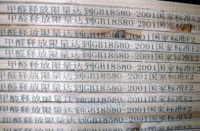 甲醛释放限量达到GB18580-2001国家标准E2
甲醛释放限量达到GB18580-2001国家标准E2
甲醛释放限量达到GB18580-2001国家标准E2
甲醛释放限量达到GB18580-2001国家标准E2
甲醛释放限量达到GB18580-2001国家标准E2
甲醛释放限量达到GB18580-2001国家标准E2
甲醛释放限量达到GB18580-2001国家标准E2
甲醛释放限量达到GB18580-2001国家标准E2